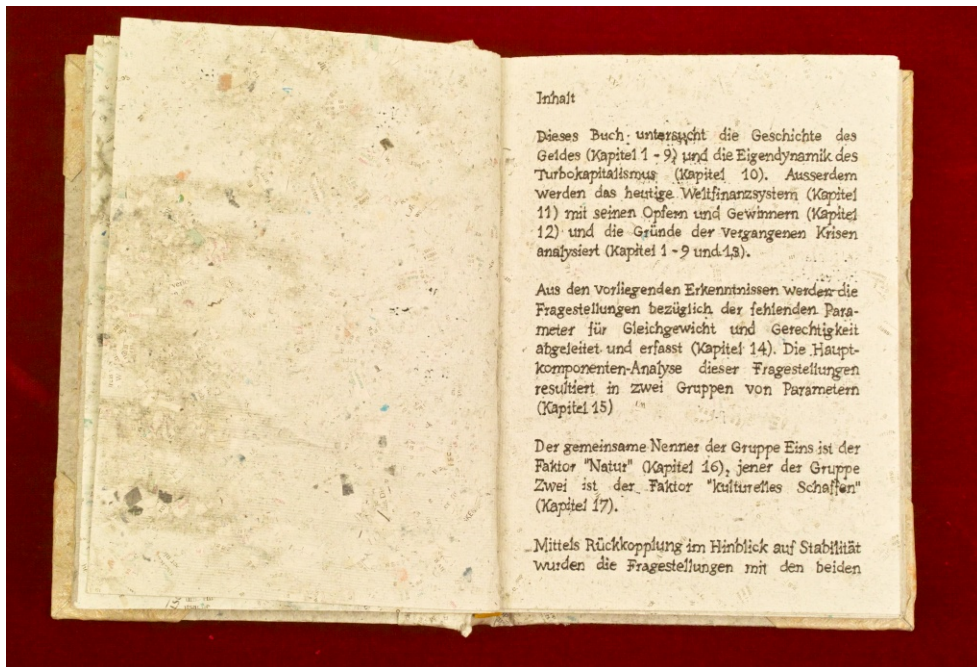 Inhalt
Dieses Buch untersucht die Geschichte des
Geldes (Kapitel 1 - 9) und die Eigendynamik des
Turbokapitalismus (Kapitel 10). Ausserdem
werden das heutige Weltfinanzsystem (Kapitel
11) mit seinen Opfern und Gewinnern (Kapitel
12) und die Gründe der vergangenen Krisen
analysiert (Kapitel 1 - 9 und 13).
Aus den vorliegenden Erkenntnissen werden die
Fragestellungen bezüglich der fehlenden Para-
meter für Gleichgewicht und Gerechtigkeit
abgeleitet und erfasst (Kapitel 14). Die Haupt-
komponenten-Analyse dieser Fragestellungen
resultiert in zwei Gruppen von Parametern
(Kapitel 15)
Der gemeinsame Nenner der Gruppe Eins ist der
Faktor "Natur" (Kapitel 16), jener der Gruppe
Zwei ist der Faktor "kulturelles Schaffen"
(Kapitel 17).
Mittels Rückkopplung im Hinblick auf Stabilität
wurden die Fragestellungen mit den beiden